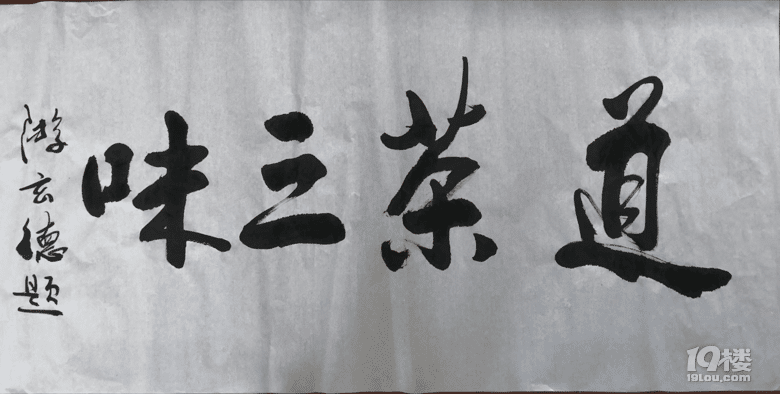 道茶三味
游玄德题
19楼
19lou.com